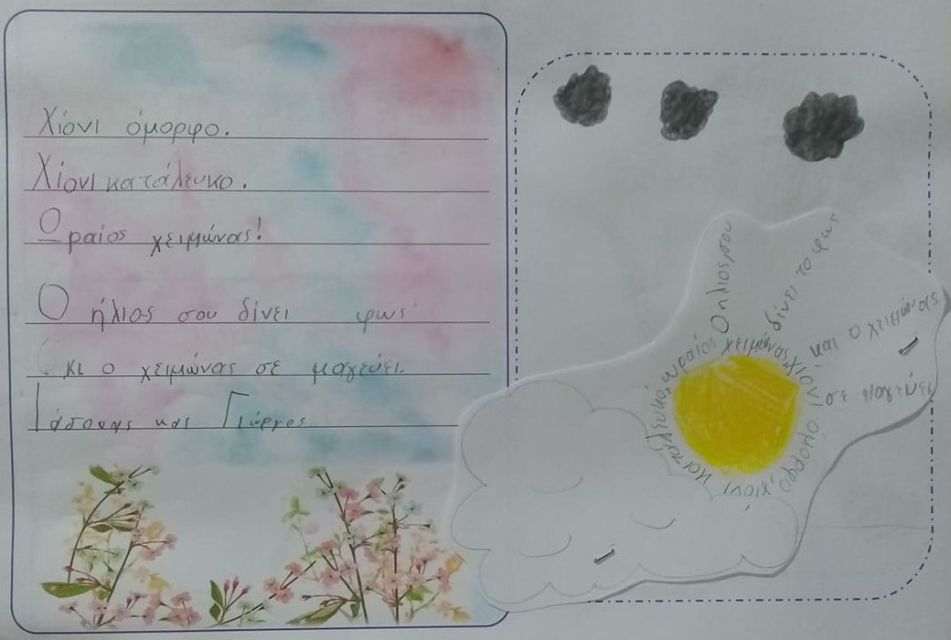 Χιόνι όμορφο.
Χιόνι κατάλευκο.
Οραίος χειμώνας!
Ο ήλιος σου δίνει φως
κι ο χειμώνας σε μαγεύει.
Ιάσονας και Γιώργος
Ο ηλιος σου
δίνει το φως
και ο χειμώνας
σε μαγεύει
χιόνι όμορφο, χιόνι κατάλευκο, ωραίος χειμώνας